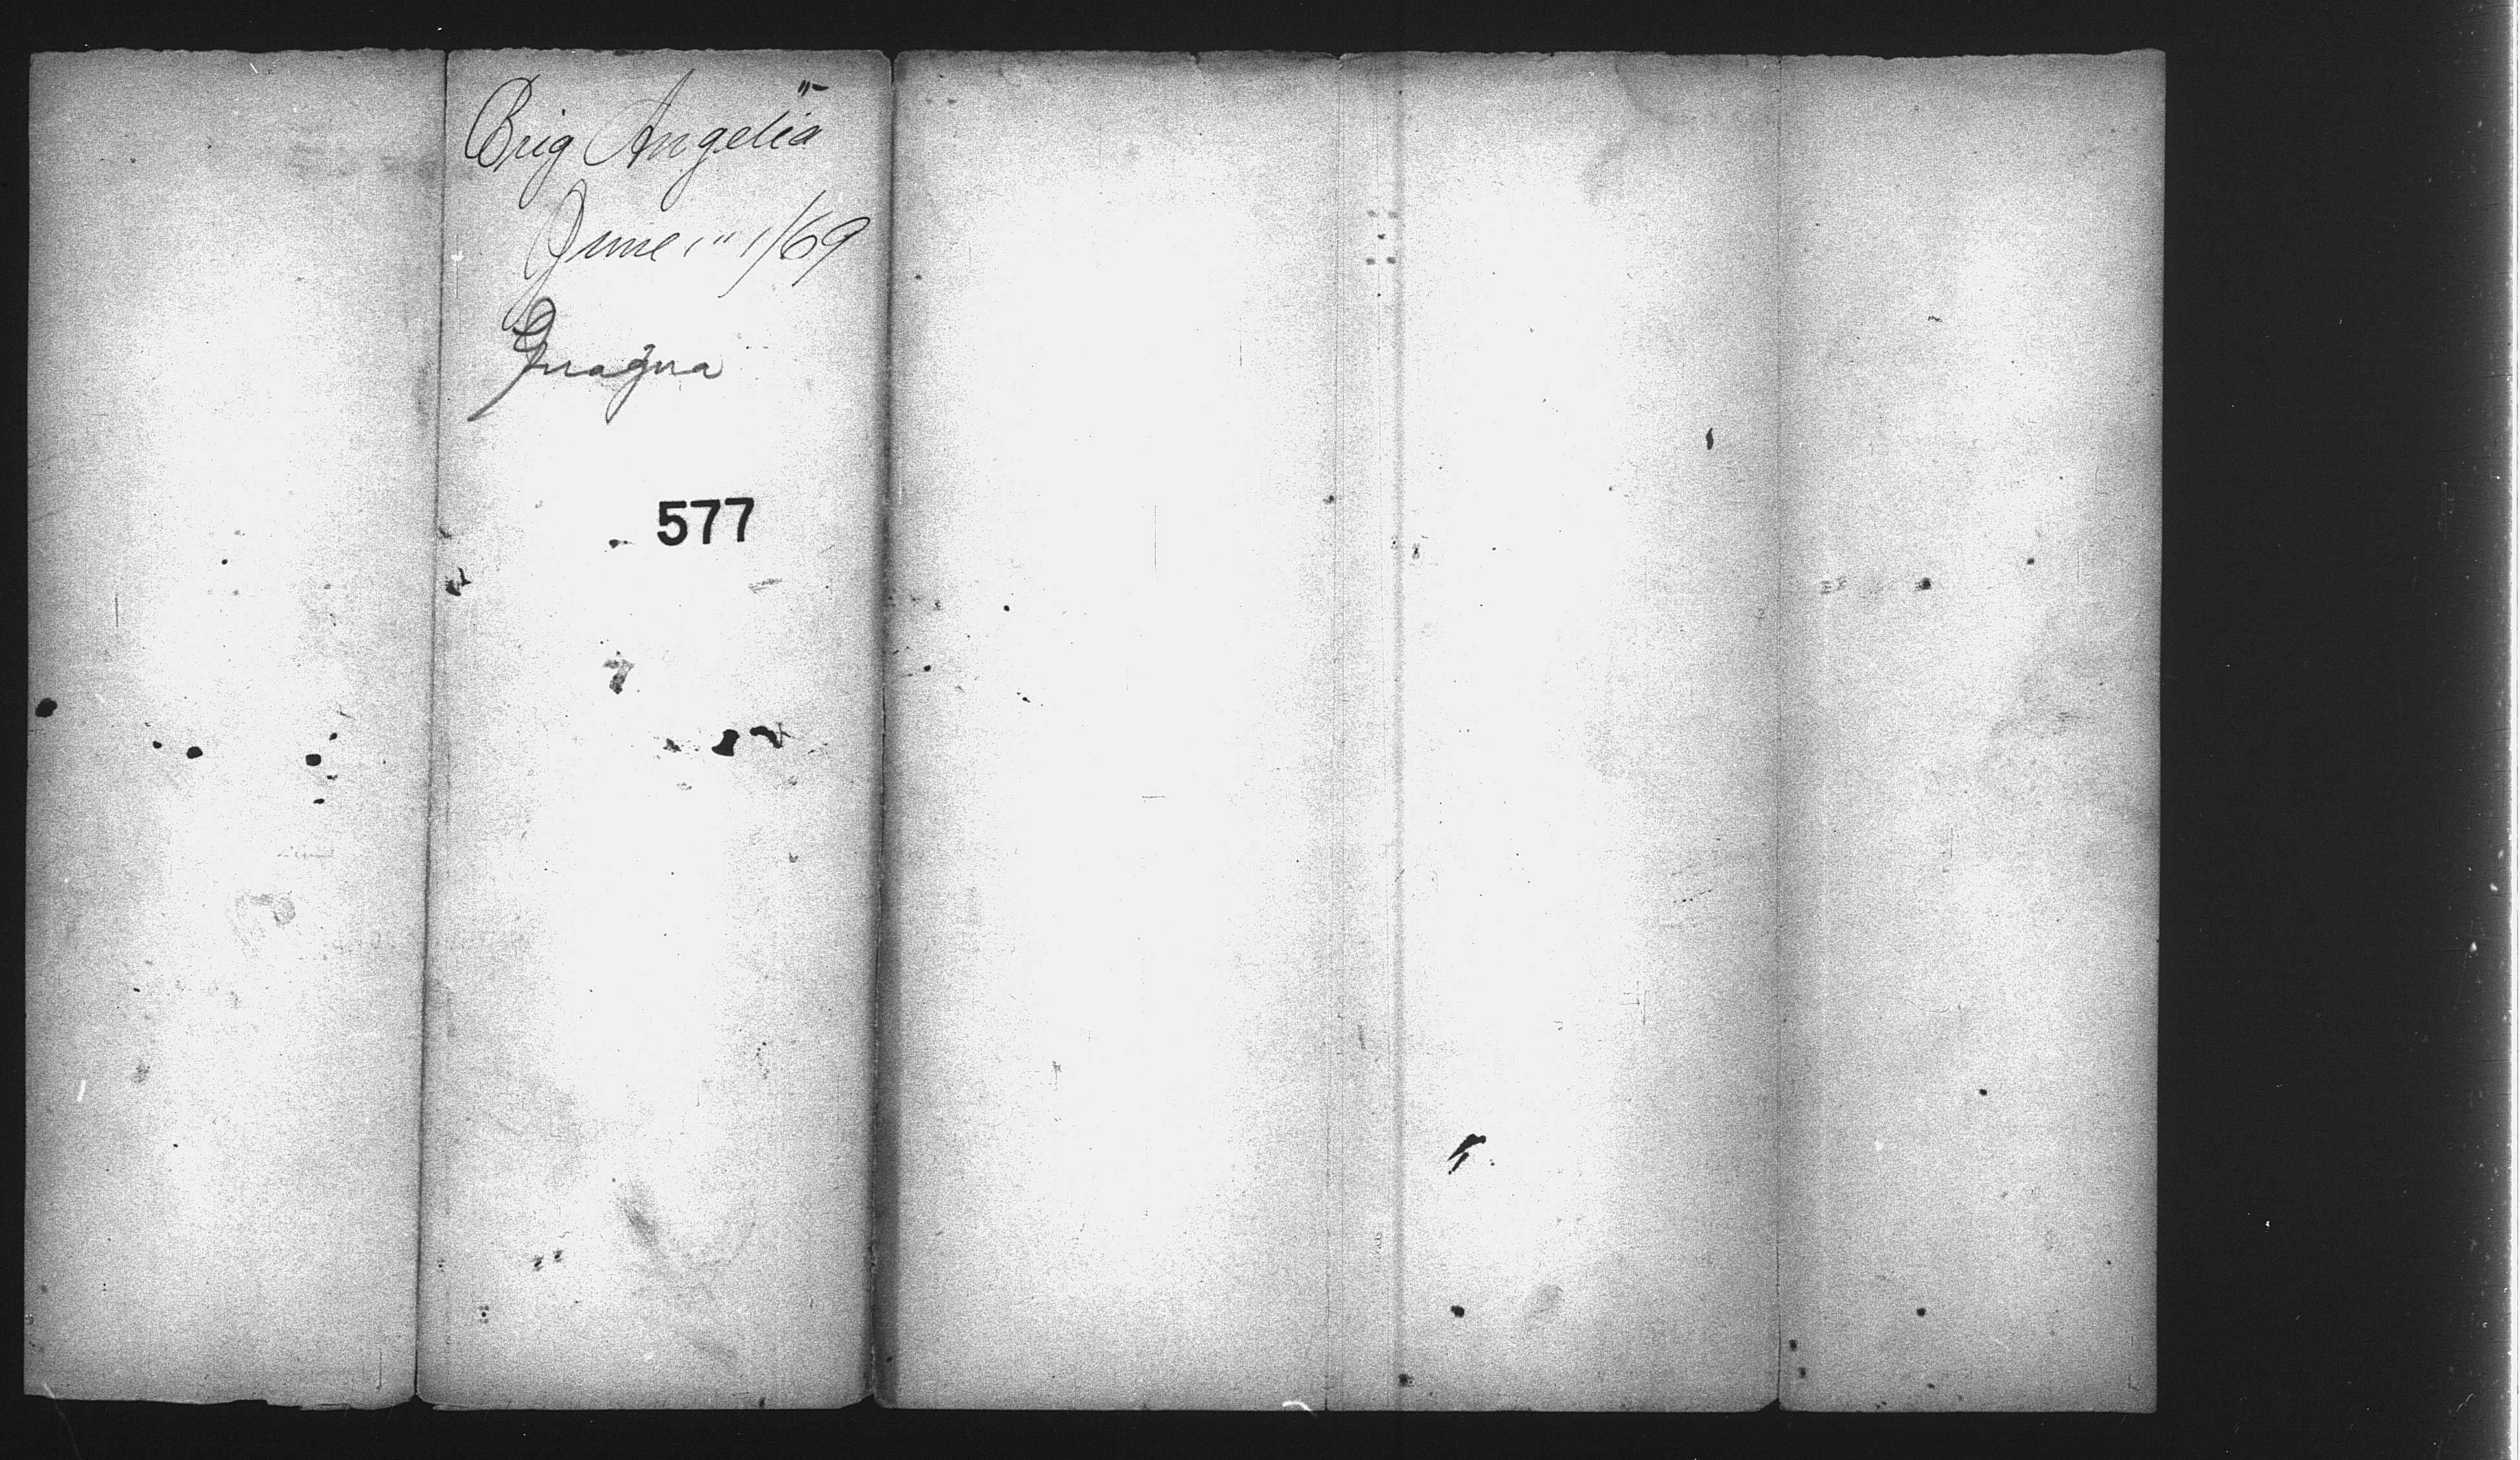 Brig Angelia
June 1" 1/69
Guagua
577